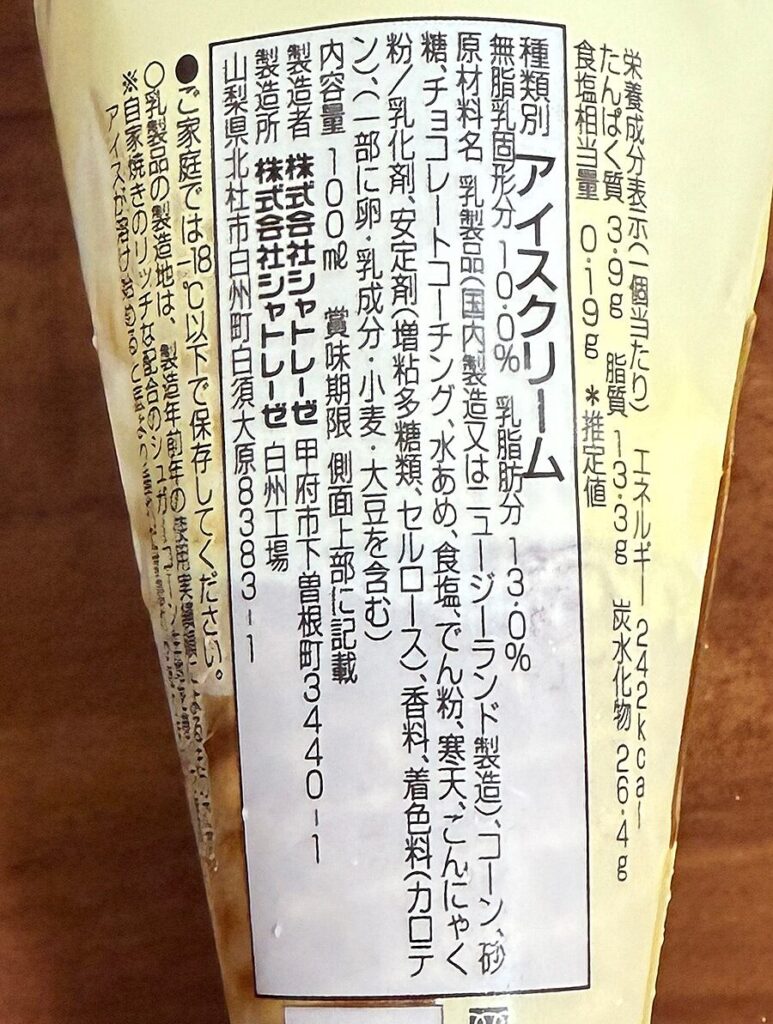 栄養成分表示(一個当たり) エネルギー 242kcal
たんぱく質 3.9g 脂質 13.3g 炭水化物 26.4g
食塩相当量 0.19g *推定値
種類別 アイスクリーム
無脂乳固形分 10.0% 乳脂肪分 13.0%
原材料名 乳製品(国内製造又はニュージーランド製造)、コーン、砂
糖、チョコレートコーチング、水あめ、食塩、でん粉、寒天、こんにゃく
粉/乳化剤、安定剤(増粘多糖類、セルロース)、香料、着色料(カロテ
ン)、(一部に卵・乳成分・小麦・大豆を含む)
内容量 100ml 賞味期限 側面上部に記載
製造者 株式会社シャトレーゼ 甲府市下曽根町3440-1
製造所 株式会社シャトレーゼ 白州工場
山梨県北杜市白州町白須大原8383-1
●ご家庭では-18℃以下で保存してください。
○乳製品の製造地は、製造年前年の使用実績順
※自家焼きのリッチな配合のシュガーコーン
アイスが溶け始めると